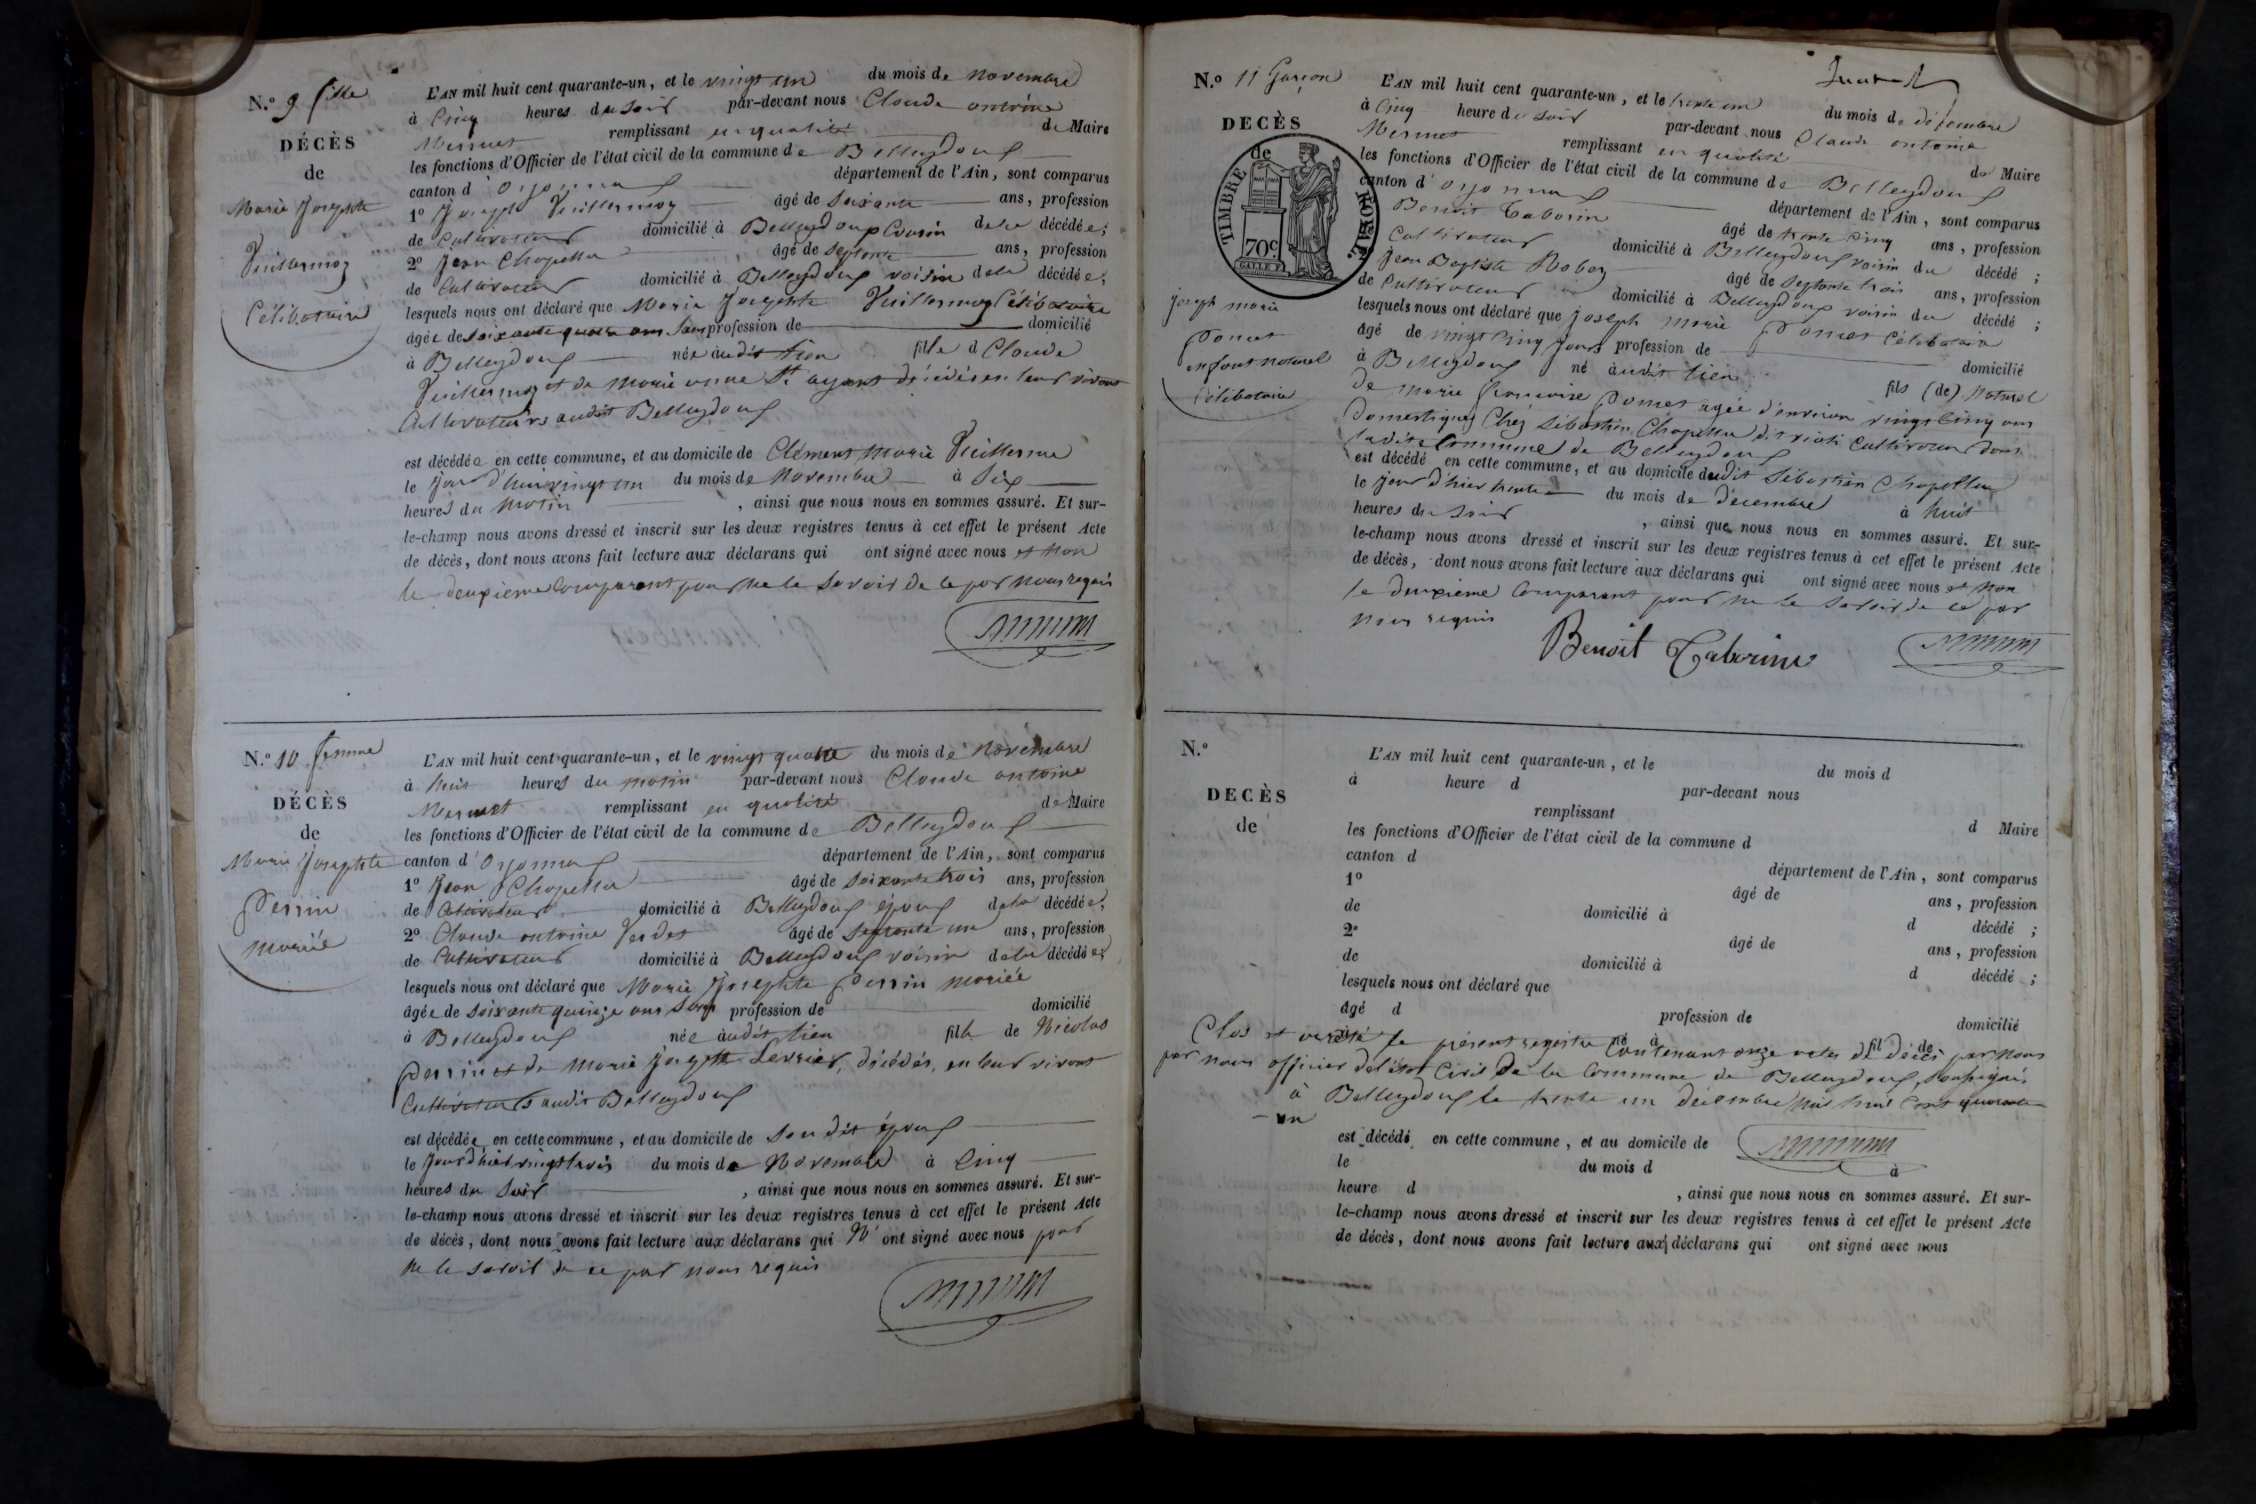 N.º 9 fille
DÉCÈS
de
Marie Josephte
Vuillermoz
Célibataire
L'AN mil huit cent quarante-un, et le vingt un du mois de novembre
à Cinq heures du soir par-devant nous Claude antoine
Mermet remplissant en qualité de Maire
les fonctions d'Officier de l'état civil de la commune de Belleydoux
canton d'oyonnax département de l'Ain, sont comparus
1º Joseph Vuillermoz âgé de soixante ans, profession
de Cultivateur domicilié à Belleydoux Cousin de la décédée;
2º Jean Chapellu âgé de septante ans, profession
de Cultivateur domicilié à Belleydoux voisin de la décédée;
lesquels nous ont déclaré que Marie Josephte Vuillermoz Célibataire
âgée de soixante quatre ans Sans profession de domicilié
à Belleydoux née audit lieu fille d Claude
Vuillermoz et de Marie anne St ayant décédés en leur vivant
Cultivateurs audit Belleydoux
est décédée en cette commune, et au domicile de Clément Marie Vuillerme
le jour d'hui vingt un du mois de Novembre à Six
heures du Matin , ainsi que nous nous en sommes assuré. Et sur-
le-champ nous avons dressé et inscrit sur les deux registres tenus à cet effet le présent Acte
de décès, dont nous avons fait lecture aux déclarans qui ont signé avec nous et Non
le deuxième Comparant pour ne le Savoir de ce par nous requis
N.º 10 femme
DÉCÈS
de
Marie Josephte
Perrin
Mariée
L'AN mil huit cent quarante-un, et le vingt quatre du mois de Novembre
à huit heures du matin par-devant nous Claude antoine
Mermet remplissant en qualité de Maire
les fonctions d'Officier de l'état civil de la commune de Belleydoux
canton d'oyonnax département de l'Ain, sont comparus
1º Jean Chapellu âgé de soixante trois ans, profession
de Cultivateur domicilié à Belleydoux époux de la décédée;
2º Claude antoine Verdet âgé de septante un ans, profession
de Cultivateur domicilié à Belleydoux voisin de la décédée;
lesquels nous ont déclaré que Marie Josephte Perrin mariée
âgée de soixante quinze ans sans profession de domicilié
à Belleydoux née audit lieu fille de Nicolas
Perrin et de Marie Josephte Levrier, décédés, en leur vivant
Cultivateurs audit Belleydoux
est décédée en cette commune, et au domicile de Son dit époux
le Jour d'hier vingt trois du mois de Novembre à Cinq
heures du Soir , ainsi que nous nous en sommes assuré. Et sur-
le-champ nous avons dressé et inscrit sur les deux registres tenus à cet effet le présent Acte
de décès, dont nous avons fait lecture aux déclarans qui N' ont signé avec nous pour
ne le savoir de ce par nous requis
N.º 11 Garçon
DECÈS
de
TIMBRE ROYAL
70c.
joseph marie
Poncet
enfant naturel
Célibataire
L'AN mil huit cent quarante-un, et le trente un du mois de décembre
à Cinq heure du soir par-devant nous Claude antoine
Mermet remplissant en qualité de Maire
les fonctions d'Officier de l'état civil de la commune de Belleydoux
canton d'oyonnax département de l'Ain, sont comparus
Benoit Taborin âgé de trente Cinq ans, profession
Cultivateur domicilié à Belleydoux voisin du décédé;
Jean Baptiste Robez âgé de Septante trois ans, profession
de Cultivateur domicilié à Belleydoux voisin du décédé;
lesquels nous ont déclaré que joseph marie Poncet Célibataire
âgé de vingt Cinq jours profession de domicilié
à Belleydoux né audit lieu fils (de) Naturel
De marie françoise Poncet agée d'environ vingt Cinq ans
Domestiques Chez Sébastien Chapellu dit cultivateur dans
la dite Commune de Belleydoux
est décédé en cette commune, et au domicile dudit Sébastien Chapellu
le jour d'hier trente du mois de Décembre à huit
heures du soir , ainsi que nous nous en sommes assuré. Et sur-
le-champ nous avons dressé et inscrit sur les deux registres tenus à cet effet le présent Acte
de décès, dont nous avons fait lecture aux déclarans qui ont signé avec nous et Non
le deuxième Comparant pour ne le Savoir de ce par
nous requis
Benoit Taborin
N.º
DECÈS
de
L'AN mil huit cent quarante-un, et le du mois d
à heure d par-devant nous
remplissant d Maire
les fonctions d'Officier de l'état civil de la commune d
canton d département de l'Ain, sont comparus
1º âgé de ans, profession
de domicilié à d décédé;
2º âgé de ans, profession
de domicilié à d décédé;
lesquels nous ont déclaré que
âgé d profession de domicilié
à né à fil de
Clos et arrêté le présent registre Contenant onze actes de décès par nous
par nous officier de l'état Civil de la Commune de Belleydoux, soussigné
à Belleydoux le trente un décembre mil huit Cent quarante
-un
est décédé en cette commune, et au domicile de
le du mois d à
heure d , ainsi que nous nous en sommes assuré. Et sur-
le-champ nous avons dressé et inscrit sur les deux registres tenus à cet effet le présent Acte
de décès, dont nous avons fait lecture aux déclarans qui ont signé avec nous